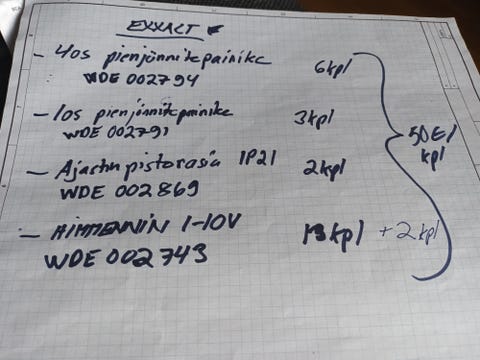 EXXACT
- 4os pienjännitepainike 6kpl
WDE 002794
- 1os pienjännitepainike 3kpl
WDE 002791
- Ajastin pistorasia IP21 2kpl
WDE 002869
- HIMMENNIN 1-10V 13kpl + 2kpl
WDE 002743
50E/
kpl